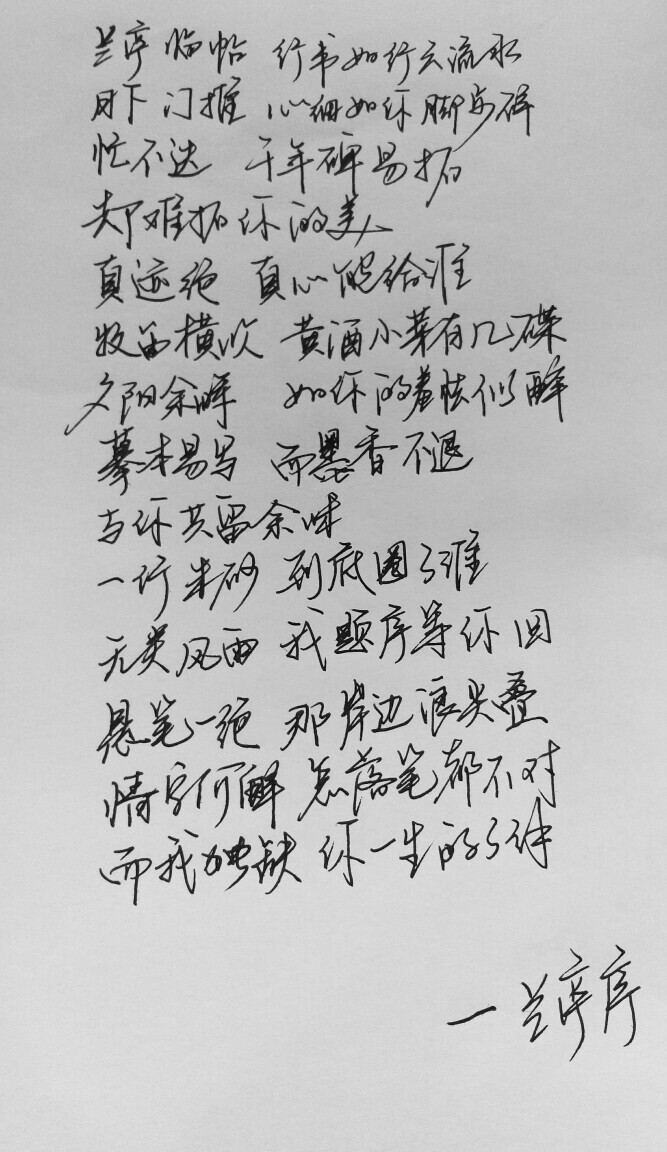 兰亭临帖 行书如行云流水
月下门推 心细如你脚步碎
忙不迭 千年碑易拓
却难拓你的美
真迹绝 真心能给谁
牧笛横吹 黄酒小菜有几碟
夕阳余晖 如你的羞怯似醉
摹本易写 而墨香不退
与你共留余味
一行朱砂 到底圈了谁
无关风雨 我题序等你回
悬笔一绝 那岸边浪头叠
情字何解 怎落笔都不对
而我独缺 你一生的了解
一兰亭序